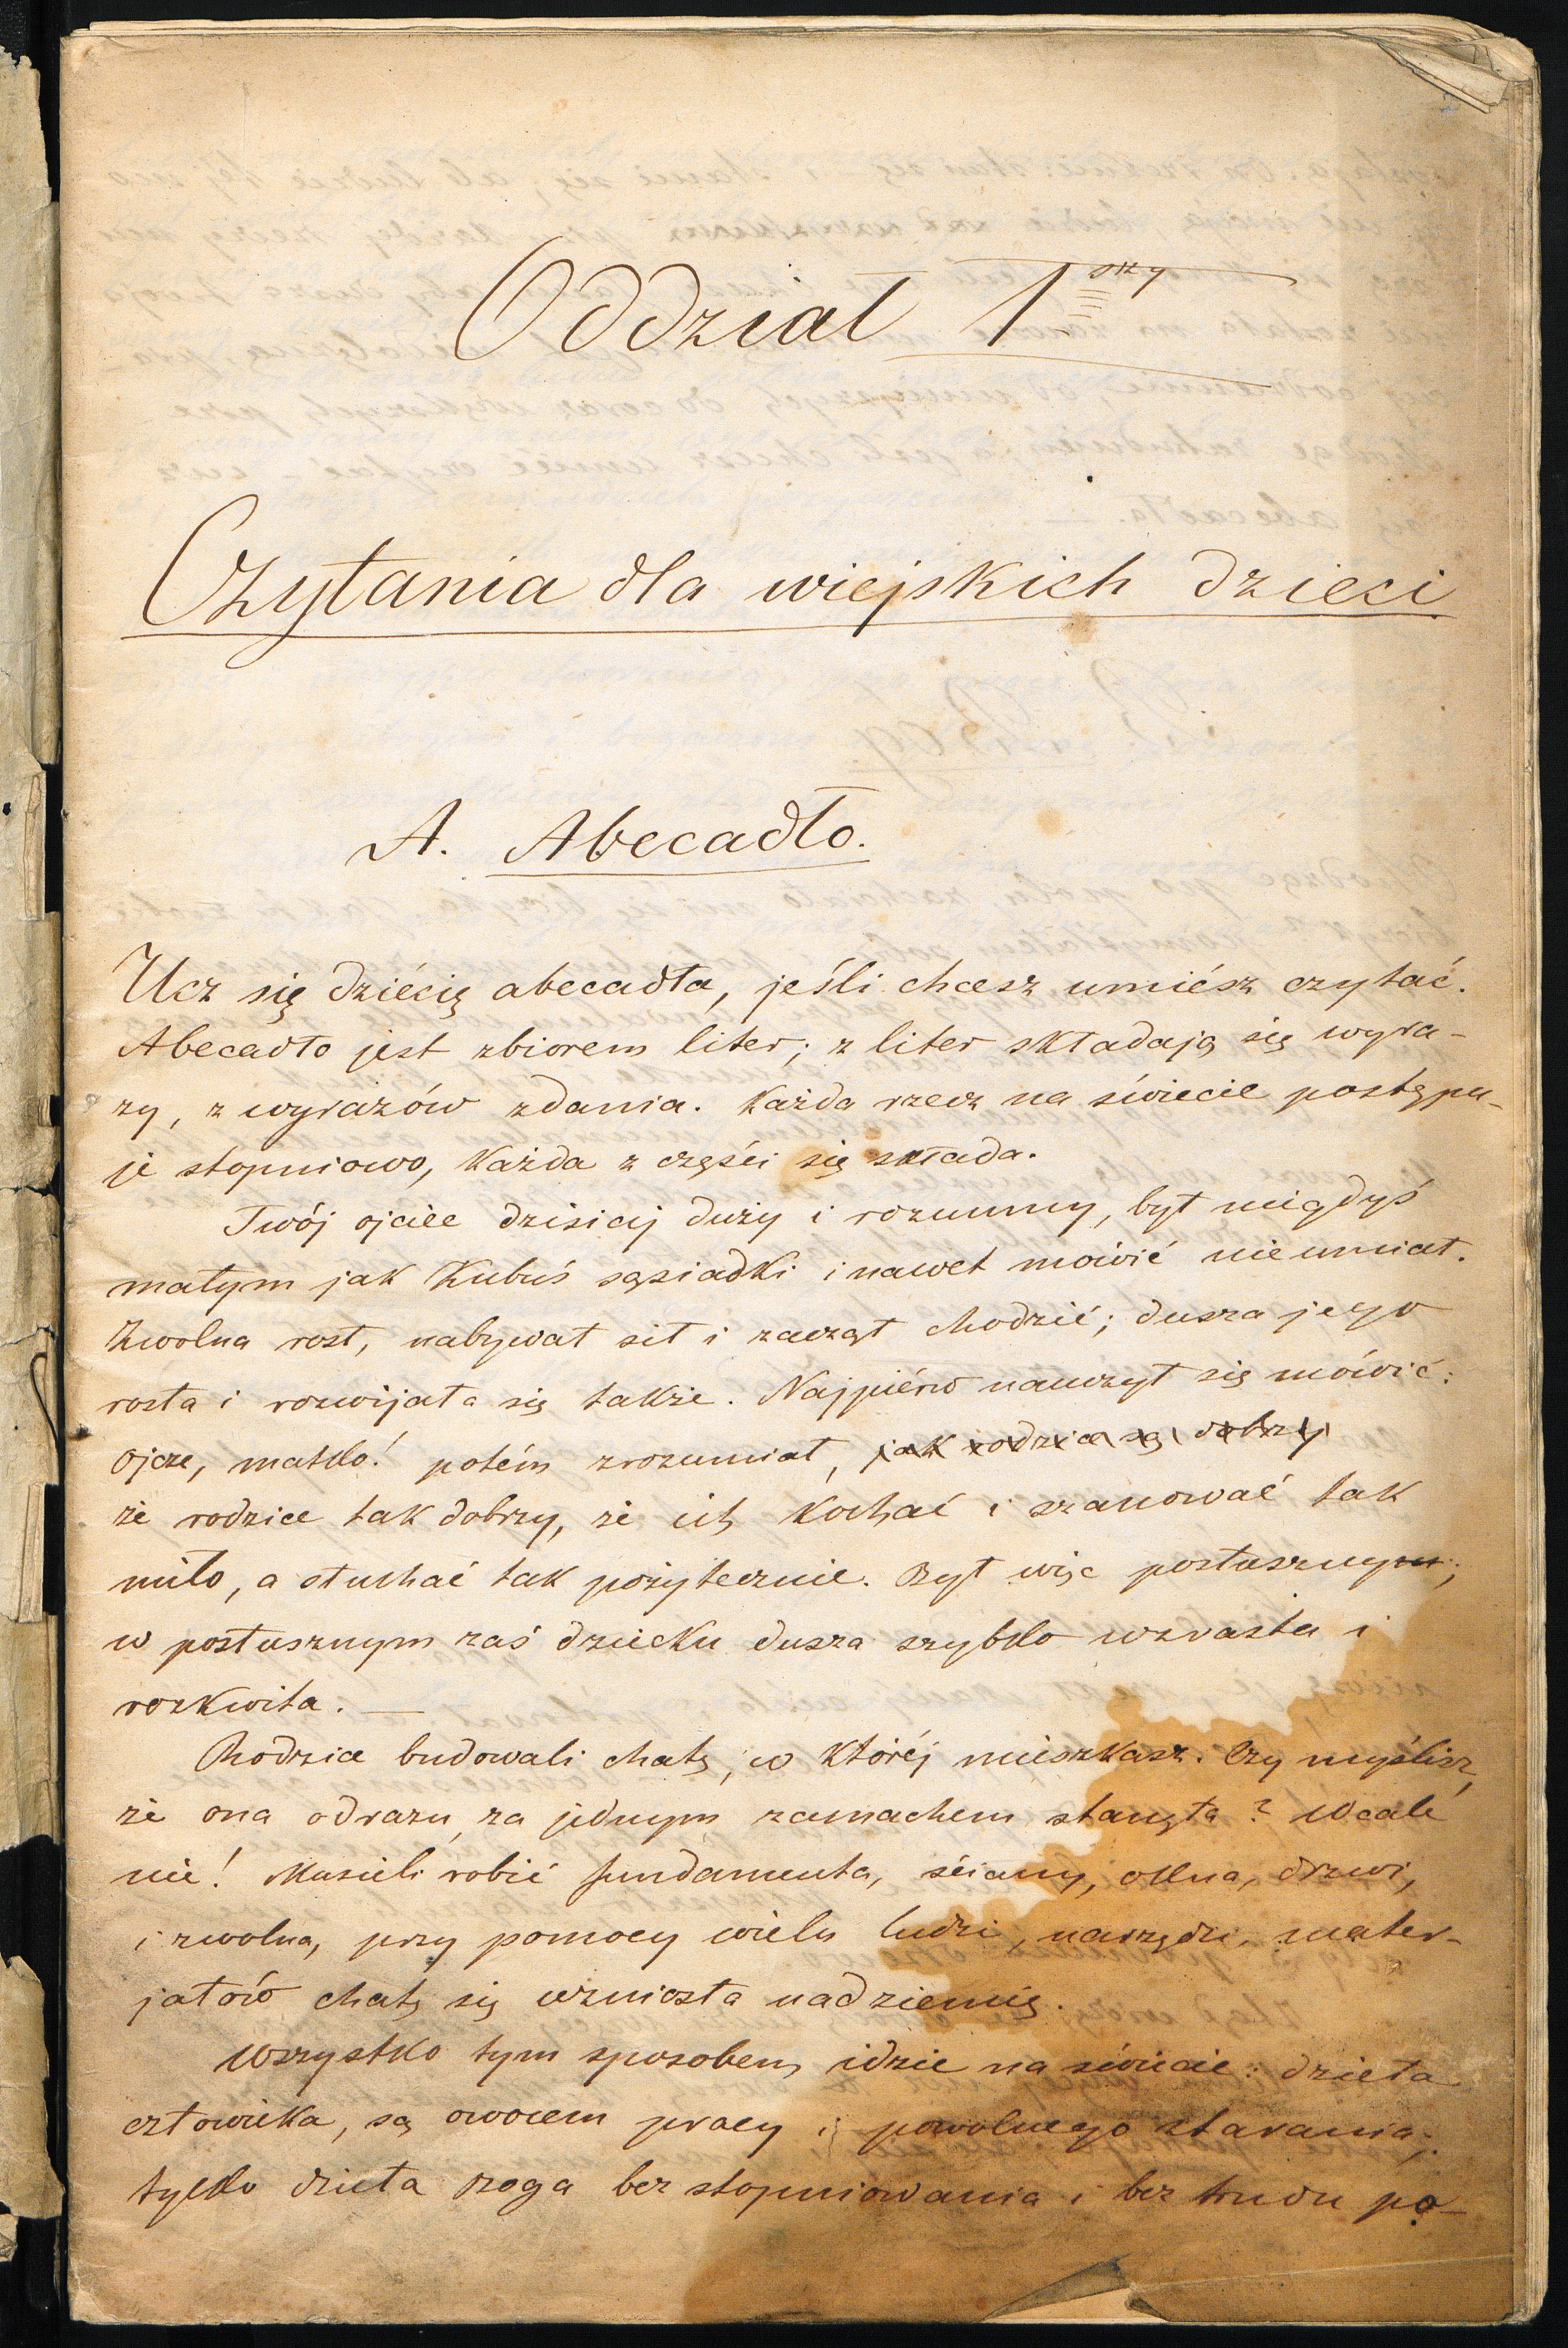 Oddział 1szy
Czytania dla wiejskich dzieci
A. Abecadło.
Ucz się dziécię abecadła, jeśli chcesz umiész czytać.
Abecadło jest zbiorem liter; z liter składają się wyra-
zy, z wyrazów zdania. Każda rzecz na świecie postępu-
je stopniowo, każda z części się składa.
Twój ojciec dzisiaj duży i rozumny, był niegdyś
małym jak Kubuś sąsiadki i nawet mówić nie umiał.
Zwolna rosł, nabywał sił i zaczął chodzić; dusza jego
rosła i rozwijała się także. Najpiérw nauczył się mówić:
ojcze, matko! potém zrozumiał, jak rodzice są dobrzy
że rodzice tak dobrzy, że ich kochać i szanować tak
miło, a słuchać tak pożytecznie. Był więc posłusznym;
w posłusznym zaś dziecku dusza szybko wzrasta i
rozkwita. —
Rodzice budowali chatę, w któréj mieszkasz. Czy myślisz,
że ona odrazu, za jednym zamachem stanęła? Wcale
nie! Musieli robić fundamenta, ściany, okna, drzwi,
i zwolna, przy pomocy wielu ludzi, narzędzi, mater-
jałów chata się wzniosła nad ziemię.
Wszystko tym sposobem idzie na świecie: dzieła
człowieka, są owocem pracy i powolnego starania;
tylko dzieła Boga bez stopniowania i bez trudu po-